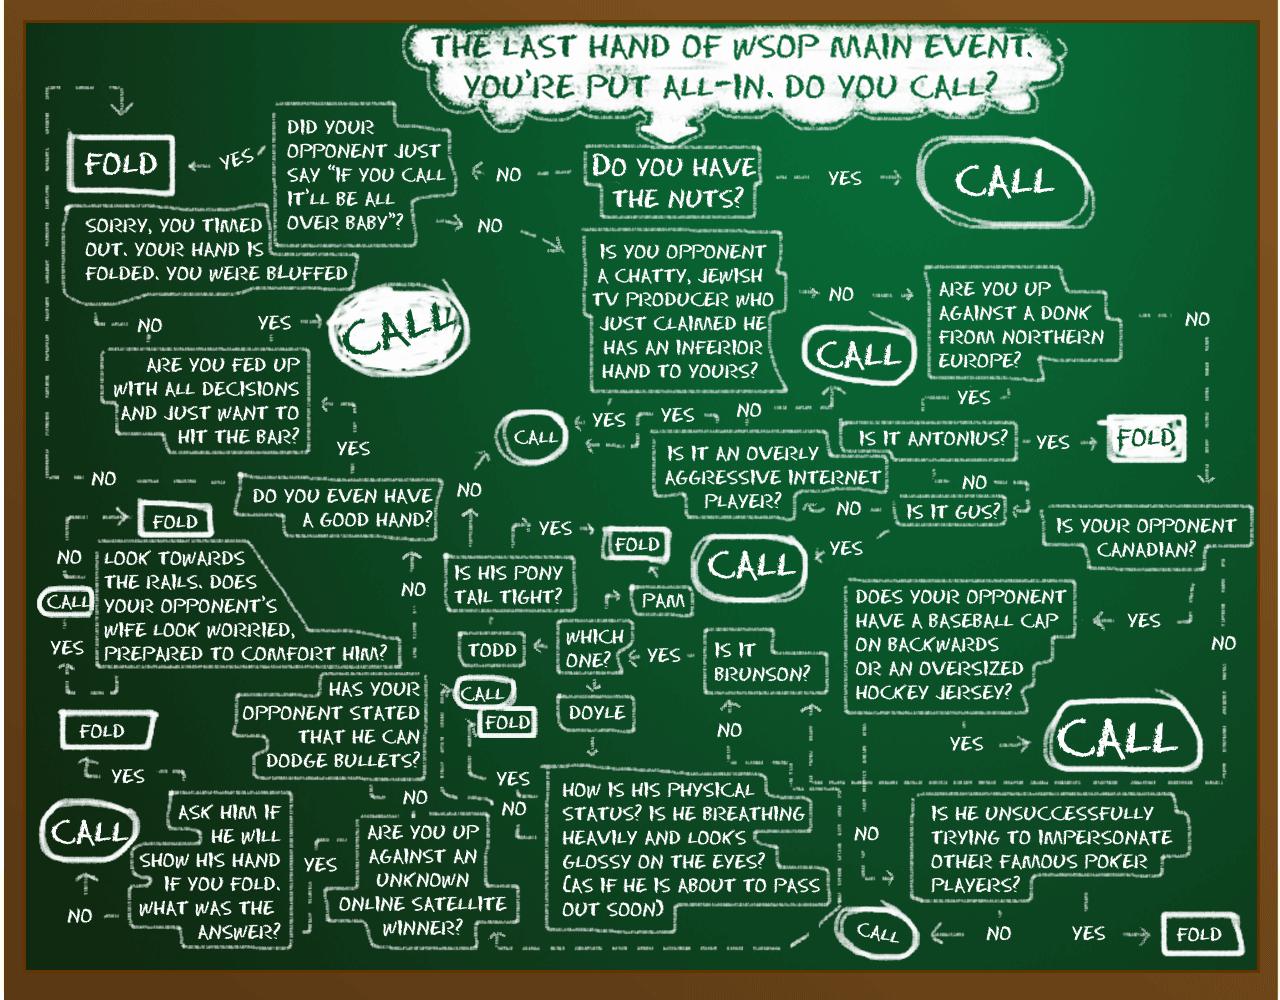 THE LAST HAND OF WSOP MAIN EVENT.
YOU'RE PUT ALL-IN. DO YOU CALL?
DO YOU HAVE
THE NUTS?
YES
CALL
NO
DID YOUR
OPPONENT JUST
SAY "IF YOU CALL
IT'LL BE ALL
OVER BABY"?
YES
FOLD
NO
SORRY, YOU TIMED
OUT. YOUR HAND IS
FOLDED. YOU WERE BLUFFED
IS YOU OPPONENT
A CHATTY, JEWISH
TV PRODUCER WHO
JUST CLAIMED HE
HAS AN INFERIOR
HAND TO YOURS?
NO
ARE YOU UP
AGAINST A DONK
FROM NORTHERN
EUROPE?
NO
CALL
NO
YES
CALL
ARE YOU FED UP
WITH ALL DECISIONS
AND JUST WANT TO
HIT THE BAR?
YES
YES
YES
NO
YES
CALL
IS IT ANTONIUS?
YES
FOLD
IS IT AN OVERLY
AGGRESSIVE INTERNET
PLAYER?
NO
IS IT GUS?
NO
YES
CALL
NO
DO YOU EVEN HAVE
A GOOD HAND?
NO
IS YOUR OPPONENT
CANADIAN?
FOLD
NO
LOOK TOWARDS
THE RAILS. DOES
YOUR OPPONENT'S
WIFE LOOK WORRIED,
PREPARED TO COMFORT HIM?
CALL
YES
NO
YES
FOLD
IS HIS PONY
TAIL TIGHT?
PAM
TODD
WHICH
ONE?
YES
IS IT
BRUNSON?
DOES YOUR OPPONENT
HAVE A BASEBALL CAP
ON BACKWARDS
OR AN OVERSIZED
HOCKEY JERSEY?
YES
NO
CALL
FOLD
DOYLE
HAS YOUR
OPPONENT STATED
THAT HE CAN
DODGE BULLETS?
FOLD
YES
NO
YES
CALL
NO
YES
NO
HOW IS HIS PHYSICAL
STATUS? IS HE BREATHING
HEAVILY AND LOOKS
GLOSSY ON THE EYES?
(AS IF HE IS ABOUT TO PASS
OUT SOON)
CALL
ASK HIM IF
HE WILL
SHOW HIS HAND
IF YOU FOLD.
WHAT WAS THE
ANSWER?
NO
YES
ARE YOU UP
AGAINST AN
UNKNOWN
ONLINE SATELLITE
WINNER?
NO
IS HE UNSUCCESSFULLY
TRYING TO IMPERSONATE
OTHER FAMOUS POKER
PLAYERS?
CALL
NO
YES
FOLD